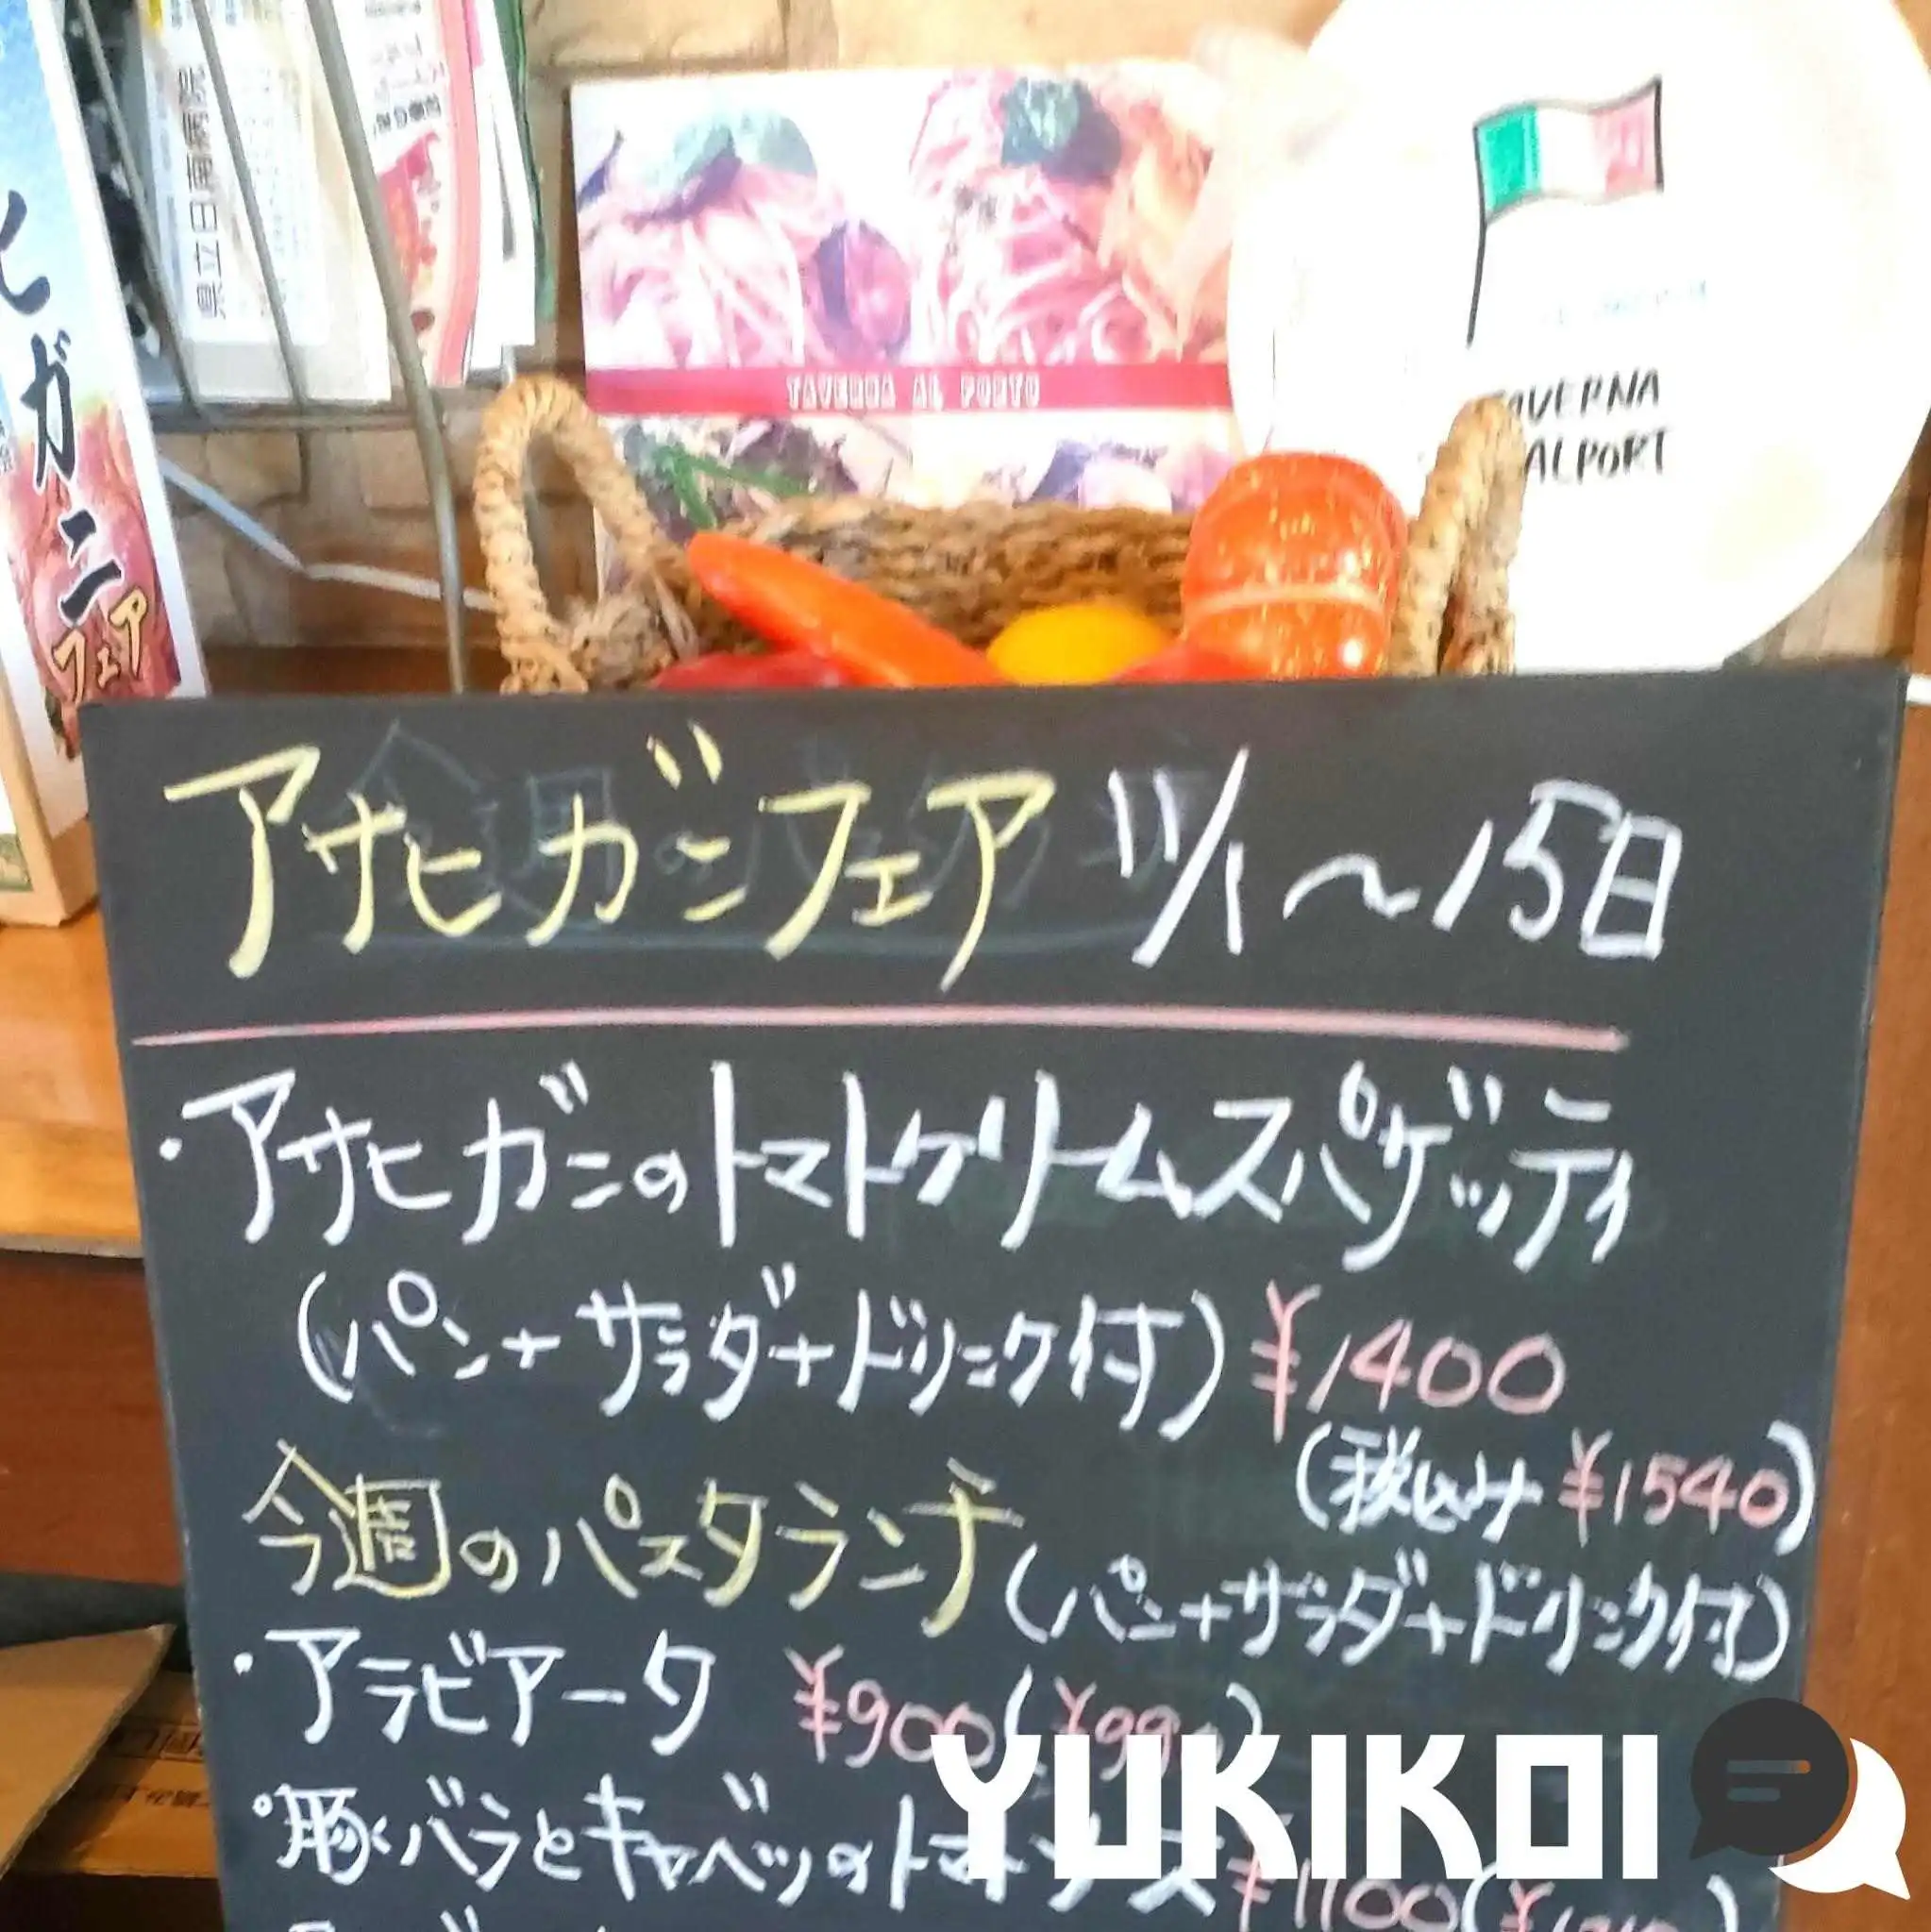 県立日南病院
ヒガニ
フェア
TAVERNA AL PORTO
TAVERNA
ALPORT
アサヒガニフェア 11/1〜15日
・アサヒガニのトマトクリームスパゲッティ
(パン+サラダ+ドリンク付) ¥1400
(税込み ¥1540)
今週のパスタランチ(パン+サラダ+ドリンク付)
・アラビアータ ¥900(¥990)
・豚バラとキャベツのトマトソース ¥1100(
YUKIKOI